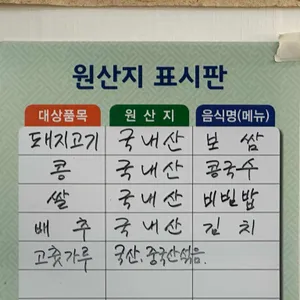 원산지 표시판
대상품목 원산지 음식명(메뉴)
돼지고기 국내산 보쌈
콩 국내산 콩국수
쌀 국내산 비빔밥
배추 국내산 김치
고춧가루 국산, 중국산섞음.